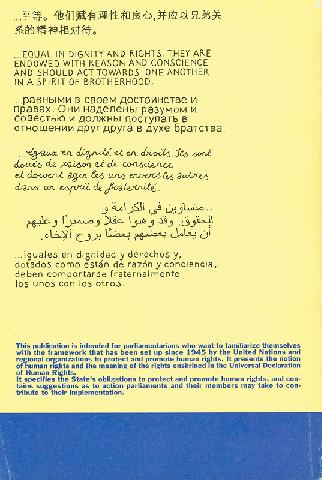 ...平等。他们赋有理性和良心,并应以兄弟关
系的精神相对待。
...EQUAL IN DIGNITY AND RIGHTS. THEY ARE
ENDOWED WITH REASON AND CONSCIENCE
AND SHOULD ACT TOWARDS ONE ANOTHER
IN A SPIRIT OF BROTHERHOOD.
...равными в своем достоинстве и
правах. Они наделены разумом и
совестью и должны поступать в
отношении друг друга в духе братства.
...égaux en dignité et en droits. Ils sont
doués de raison et de conscience
et doivent agir les uns envers les autres
dans un esprit de fraternité.
...متساوين في الكرامة و
الحقوق. وقد وهبوا عقلاً وضميرًا وعليهم
أن يعامل بعضهم بعضًا بروح الإخاء.
...iguales en dignidad y derechos y,
dotados como están de razón y conciencia,
deben comportarse fraternalmente
los unos con los otros.
This publication is intended for parliamentarians who want to familiarize themselves
with the framework that has been set up since 1945 by the United Nations and
regional organizations to protect and promote human rights. It presents the notion
of human rights and the meaning of the rights enshrined in the Universal Declaration
of Human Rights.
It specifies the State's obligations to protect and promote human rights, and con-
tains suggestions as to action parliaments and their members may take to con-
tribute to their implementation.